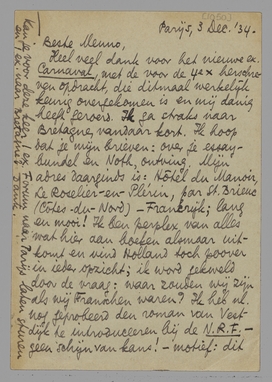 Parijs, 3 Dec. '34.
Beste Menno,
Heel veel dank voor het nieuwe ex.
Carnaval, met de voor de 4e x herschre-
ven opdracht, die ditmaal werkelijk
keurig overgekomen is en mij danig
heeft geroerd. Ik ga straks naar
Bretagne, vandaar kort. Ik hoop
dat je mijn brieven: over je essay-
bundel en Noth, ontving. Mijn
adres daarginds is: Hôtel du Manoir,
Le Roselier-en-Plérin, par St. Brieuc
(Côtes-du-Nord) – Frankrijk; lang
en mooi! Ik ben perplex van alles
wat hier aan boeken alsmaar uit-
komt en vind Holland toch poover
in ieder opzicht; ik word gekweld
door de vraag: waar zouden wij zijn
als wij Franschen waren? Ik heb nl.
nog geprobeerd den roman van Vest-
dijk te introduceeren bij de N.R.F. –
geen schijn van kans! – motief: dit
Kan je voor deze keer ex.
Forum naar Parijs laten sturen